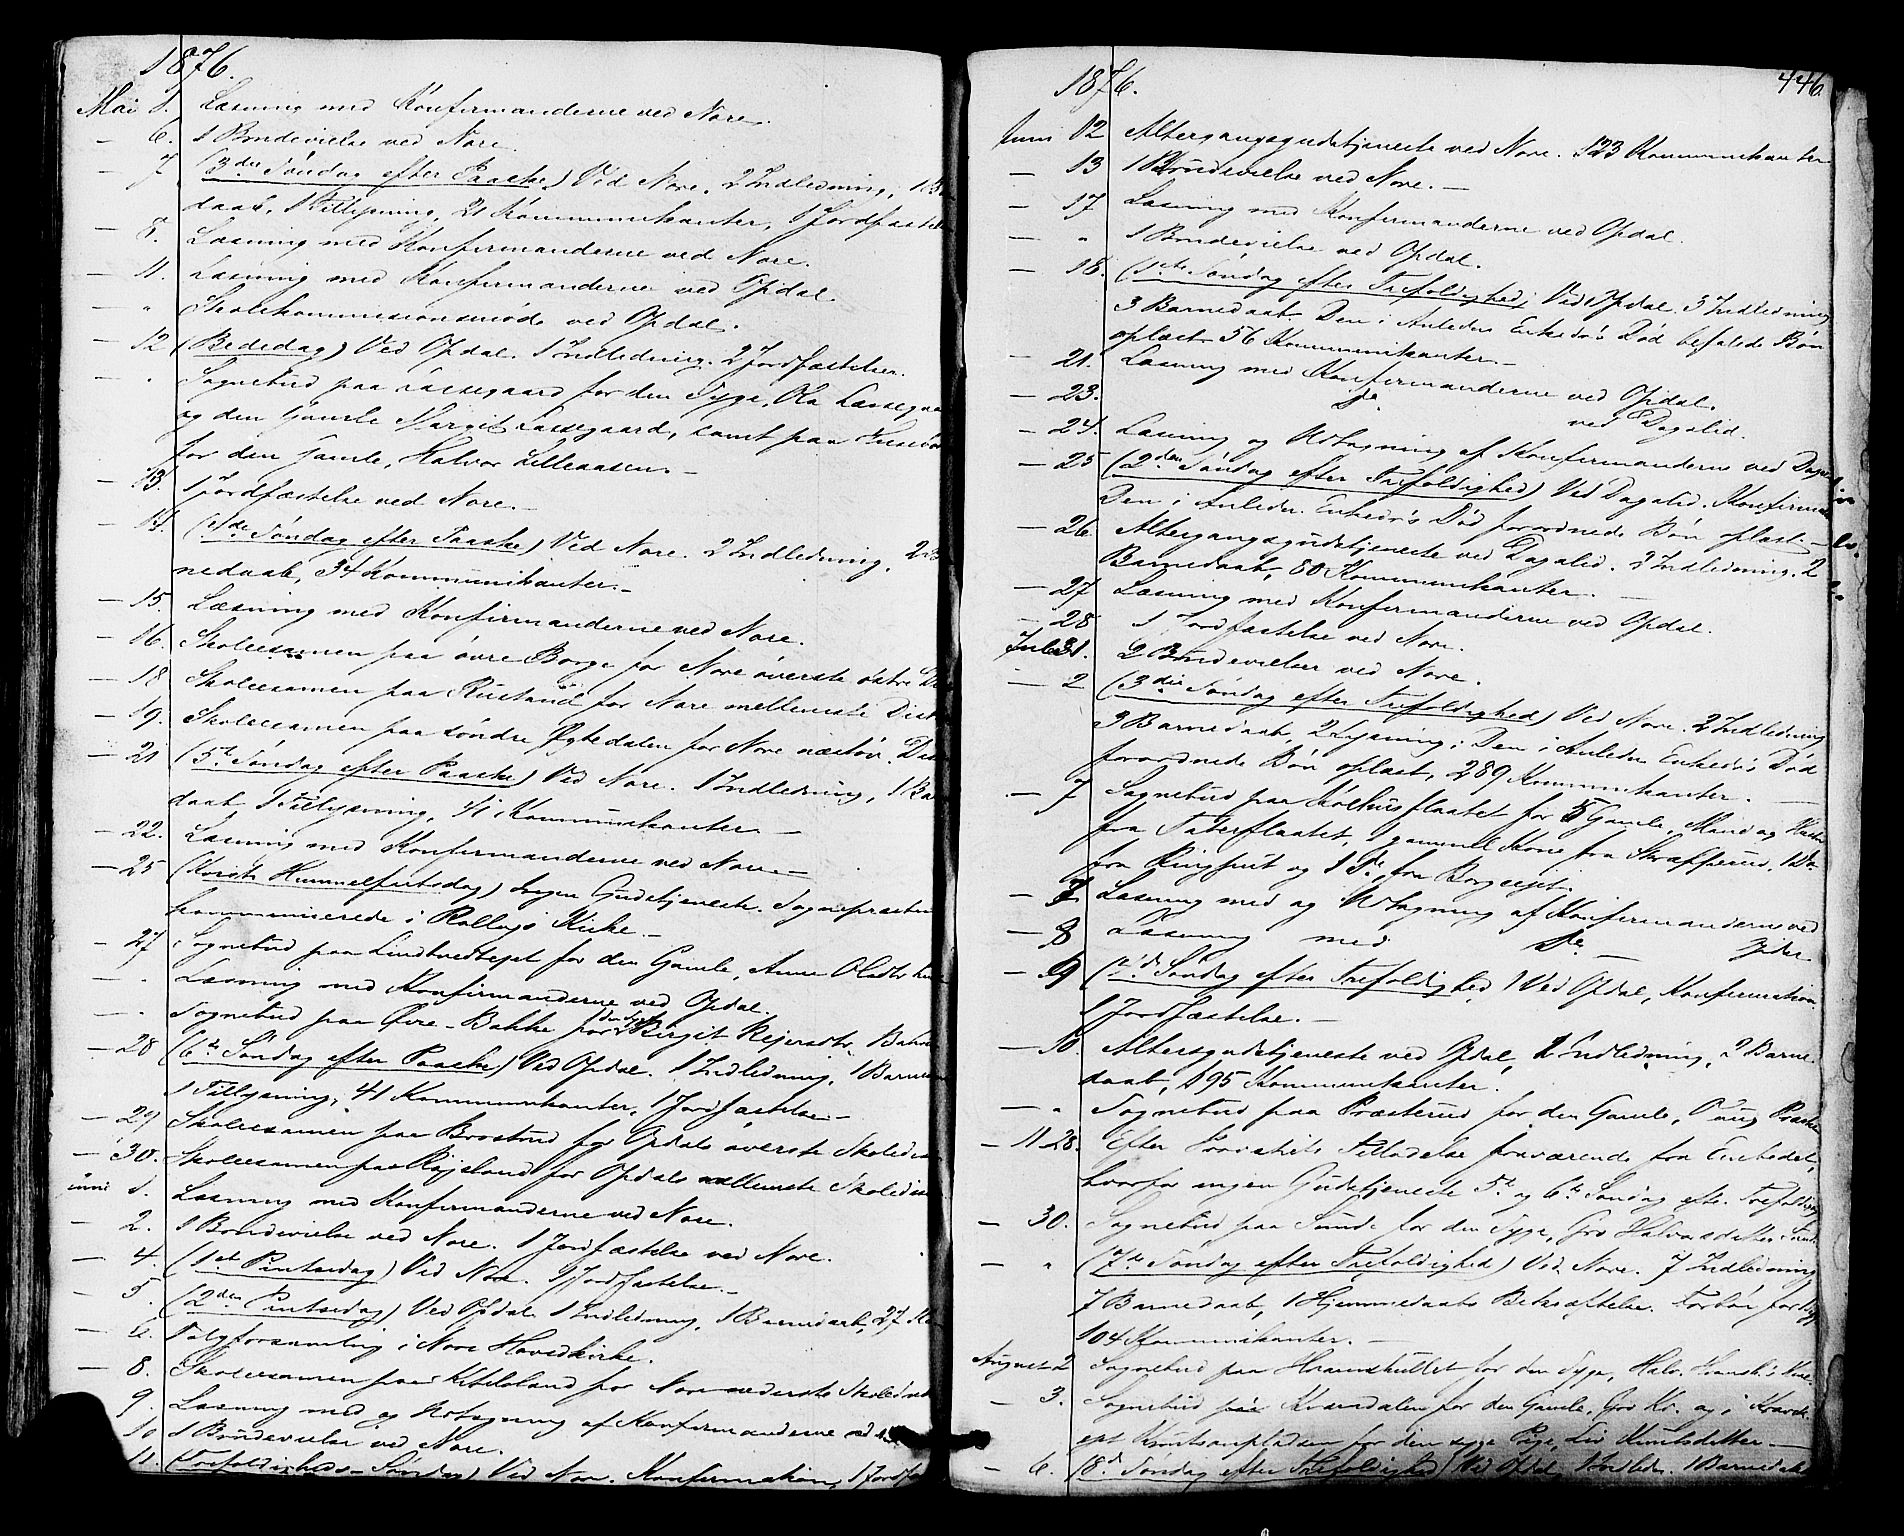 1876.
Mai 1. Læsning med Konfirmanderne ved Nore.
— 6. 1 Brudevielse ved Nore.
— 7 (3die Søndag efter Paaske) Ved Nore. 2 Indledning, 1 B
daab, 1 Tillysning, 21 Kommunikanter, 1 Jordfæstelse
— 8. Læsning med Konfirmanderne ved Nore.
— 11. Læsning med Konfirmanderne ved Opdal.
— " Skolekommissionsmøde ved Opdal.
— 12 (Bededag) Ved Opdal. 1 Indledning. 2 Jordfæstelser.
— " Sognebud paa Lassegaard for den Syge, Ola Lassegaa
og den gamle Margit Lassegaard, samt paa
for den gamle, Halvor Lilleaasen. —
— 13. 1 Jordfæstelse ved Nore. —
— 14. (4de Søndag efter Paaske) Ved Nore. 2 Indledning, 2 B
nedaab, 34 Kommunikanter. —
— 15. Læsning med Konfirmanderne ved Nore.
— 16. Skoleexamen paa øvre Borge for Nore øverste østre D
— 18 Skoleexamen paa Rustand for Nore mellemste Dist
— 19. Skoleexamen paa søndre Øygedalen for Nore næstøv. Dis
— 21 (5te Søndag efter Paaske) Ved Nore. 1 Indledning, 1 Ba
daab 1 Tillysning, 41 Kommunikanter —
— 22. Læsning med Konfirmanderne ved Nore. —
— 25 (Kristi Himmelfartsdag) Ingen Gudstjeneste. Sognepræsten
kommuniserede i Rollags Kirke. —
— 27 Sognebud paa Lindtvedteget for den Gamle, Anne Olsdtr
— " Læsning med Konfirmanderne ved Opdal.
— " Sognebud paa Øvre-Bakke for den syge Birgit Rejersdtr. Bakke
— 28 (6te Søndag efter Paaske) Ved Opdal. 1 Indledning, 1 Barne
1 Tillysning, 41 Kommunikanter, 1 Jordfæstelse —
— 29 Skoleexamen paa Brostrud for Opdals øverste Skoledis
— 30. Skoleexamen paa Røjsland for Opdals mellemste Skoledis
uni 1. Læsning med Konfirmanderne ved Nore.
— 2. 1 Brudevielse ved Nore. 1 Jordfæstelse ved Nore.
— 4. (1ste Pintsedag) Ved Nore. 1 Jordfæstelse. —
— 5. (2den Pintsedag) Ved Opdal 1 Indledning, 1 Barnedaab, 27 Ko
— 6. Valgforsamling i Nore Hovedkirke.
— 8. Skoleexamen paa Kittilsland for Nore nederste Skoledist
9. Læsning med og Udtagning af Konfirmanderne ved
10 1 Brudevielse ved Nore.
11. (Trefoldigheds-Søndag) Ved Nore. Konfirmation, 1 Jordfæ
1876. 446
Juni 12 Altergangsgudstjeneste ved Nore. 123 Kommunikanter
— 13 1 Brudevielse ved Nore. —
— 17 Læsning med Konfirmanderne ved Opdal.
— " 1 Brudevielse ved Opdal.
— 18. (1ste Søndag efter Trefoldighed) Ved Opdal. 3 Indledning
3 Barnedaab. Den i Anledn. Enkedr's Død befalede Bøn
oplæst. 56 Kommunikanter —
— 21. Læsning med Konfirmanderne ved Opdal.
— 23. Do ved Dagalid.
— 24. Læsning og Udtagning af Konfirmanderne ved Daga
— 25 (2den Søndag efter Trefoldighed) Ved Dagalid. Konfirma
Den i Anledn. Enkedr's Død forordnede Bøn oplæst. —
— 26 Altergangsgudstjeneste ved Dagalid. 2 Indledning. 2
Barnedaab, 80 Kommunikanter. —
— 27 Læsning med Konfirmanderne ved Opdal.
— 28 1 Jordfæstelse ved Nore.
Juli 1. 2 Brudevielser ved Nore.
— 2 (3die Søndag efter Trefoldighed) Ved Nore. 2 Indledning
3 Barnedaab, 2 Lysning; Den i Anledn Enkedr's Død
forordnede Bøn oplæst, 289 Kommunikanter. —
— 7 Sognebud paa Kølhusflaatet for 5 Gamle, Mand og Kone
fra Taterflaatet, 1 gammel Kone fra Skrapperud, 1 Do
fra Ringhuit og 1 Do fra Borgeejet.
— 7. Læsning med og Udtagning af Konfirmanderne ved
— 8 Læsning med Do — Opdal
— 9 (4de Søndag efter Trefoldighed) Ved Opdal, Konfirmation
1 Jordfæstelse. —
— 10. Altersgudstjeneste ved Opdal, 2 Indledning, 2 Barne-
daab, 195 Kommunikanter.
— " Sognebud paa Præsterud for den Gamle,
— 11-28. Efter Provstiets Tilladelse fraværende fra Embedet,
hvorfor ingen Gudstjeneste 5te og 6te Søndag eft. Trefoldigh
— 30. Sognebud paa Sunde for den Syge, Gro Halvorsdatter Sunde
— " (7de Søndag efter Trefoldighed) Ved Nore. 7 Indledning
7 Barnedaab, 1 Hjemmedaabs Bekræftelse. Forbøn for Syg
104 Kommunikanter. —
August 2 Sognebud paa for den Syge,
— 3. Sognebud paa Kvandalen for den Gamle, Gro Kr. og i
ejet Knutsenpladsen for den syge Pige, Liv Knutsdatter —
— 6. (8de Søndag efter Trefoldighed) Ved Opdal, 1 Indledn. 1 Barnedaab